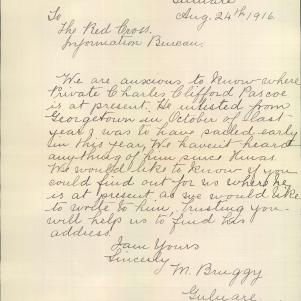 Gulnare
Aug. 24th 1916.
To
The Red Cross.
Information Bureau.
We are anxious to know where
Private Charles Clifford Pascoe
is at present. He inlisted from
Georgetown in October of last
year, & was to have sailed early
in this year. We haven't heard
anything of him since Xmas.
We would like to know if you
could find out for us where he
is at present as we would like
to write to him. Trusting you
will help us to find his
address.
I am Yours
Sincerely
M. Bruggy
Gulnare